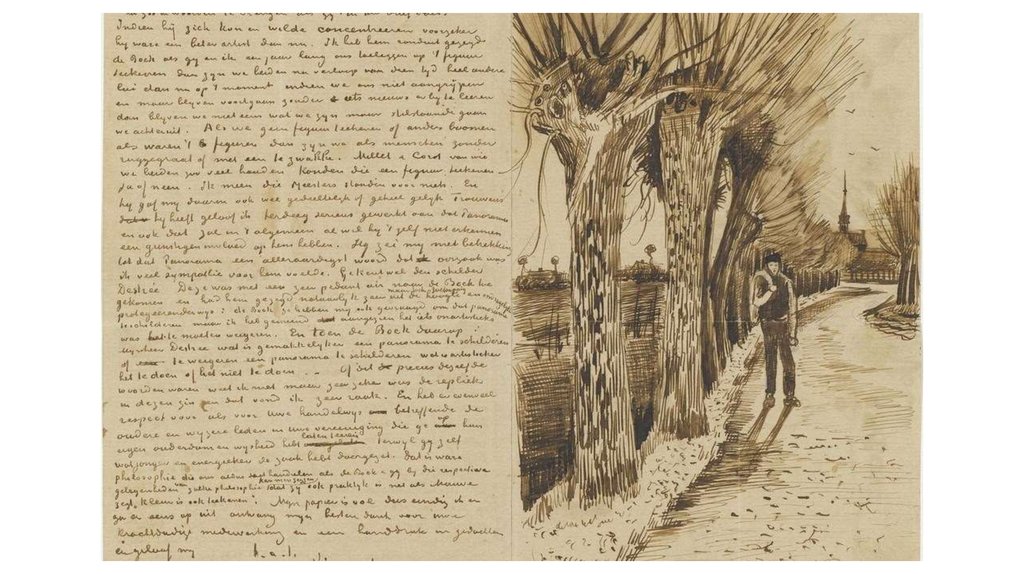 Indien hij zich kon en wilde concentreeren voorzeker
hij ware een beter artist dan nu. Ik heb hem ronduit gezegd
de Bock als gij en ik een jaar lang ons toeleggen op 't figuur
teekenen dan zijn we beiden na verloop van dien tijd heel andere
lui dan nu op 't moment indien we ons niet aangrijpen
en maar blijven voortgaan zonder iets nieuws erbij te leeren
dan blijven we niet eens wat we zijn maar stilstaande gaan
we achteruit. Als we geen figuur teekenen of anders boomen
als waren 't figuren dan zijn we als menschen zonder
ruggegraat of met een te zwakke. Millet & Corot van wie
we beiden zoo veel houden konden die een figuur teekenen
Ja of neen. Ik meen die Meesters stonden voor niets. En
hij gaf mij daarin ook wee gedeeltelijk of geheel gelijk. Trouwens
hij heeft geloof ik terdeeg serieus gewerkt aan dat Panorama
en ook dat zal in 't algemeen al wil hij 't zelf niet erkennen
een gunstigen invloed op hem hebben. Hij zei mij met betrekking
tot dat Panorama een alleraardigst woord dat oorzaak was
ik veel sympathie voor hem voelde. Ge kent wel den schilder
Destrée. Deze was met een zeer pedant air naar de Bock toe
gekomen en had hem gezegd natuurlijk zeer uit de hoogte en
protegeerenderwijs: de Bock ze hebben mij ook gevraagd om dat panorama
te schilderen maar ik heb gemeend aangezien het als onartistieks
was het te moeten weigeren. En toen de Bock daarop:
Mijnheer Destrée wat is gemakkelijker een panorama te schilderen
of te weigeren een panorama te schilderen wat is artistieker
het te doen of het niet te doen. Of dit precies dezelfde
woorden waren weet ik niet maar zeer zeker was de repliek
in dezen zin en dat vond ik zeer raak. En heb evenveel
respect voor als voor Uwe handelwijs betreffende de
oudere en wijzere leden in Uwe vereeniging die ge aan hun
eigen ouderdom en wijsheid hebt laten teeren terwijl gij zelf
wat jonger en energieker de zaak hebt doorgezet. Dat is ware
philosophie die ons doet handelen als de Bock & gij bij die respectieve
gelegenheden van zulke philosophie kan men zeggen dat zij ook praktijk is net als Mauve
zegt Kleuren is ook teekenen. Mijn papier is vol dus eindig ik en
ga er eens op uit ontvang mijn besten dank voor uwe
krachtdadige medewerking en een handdruk in gedachten
en geloof mij
t.à.t.